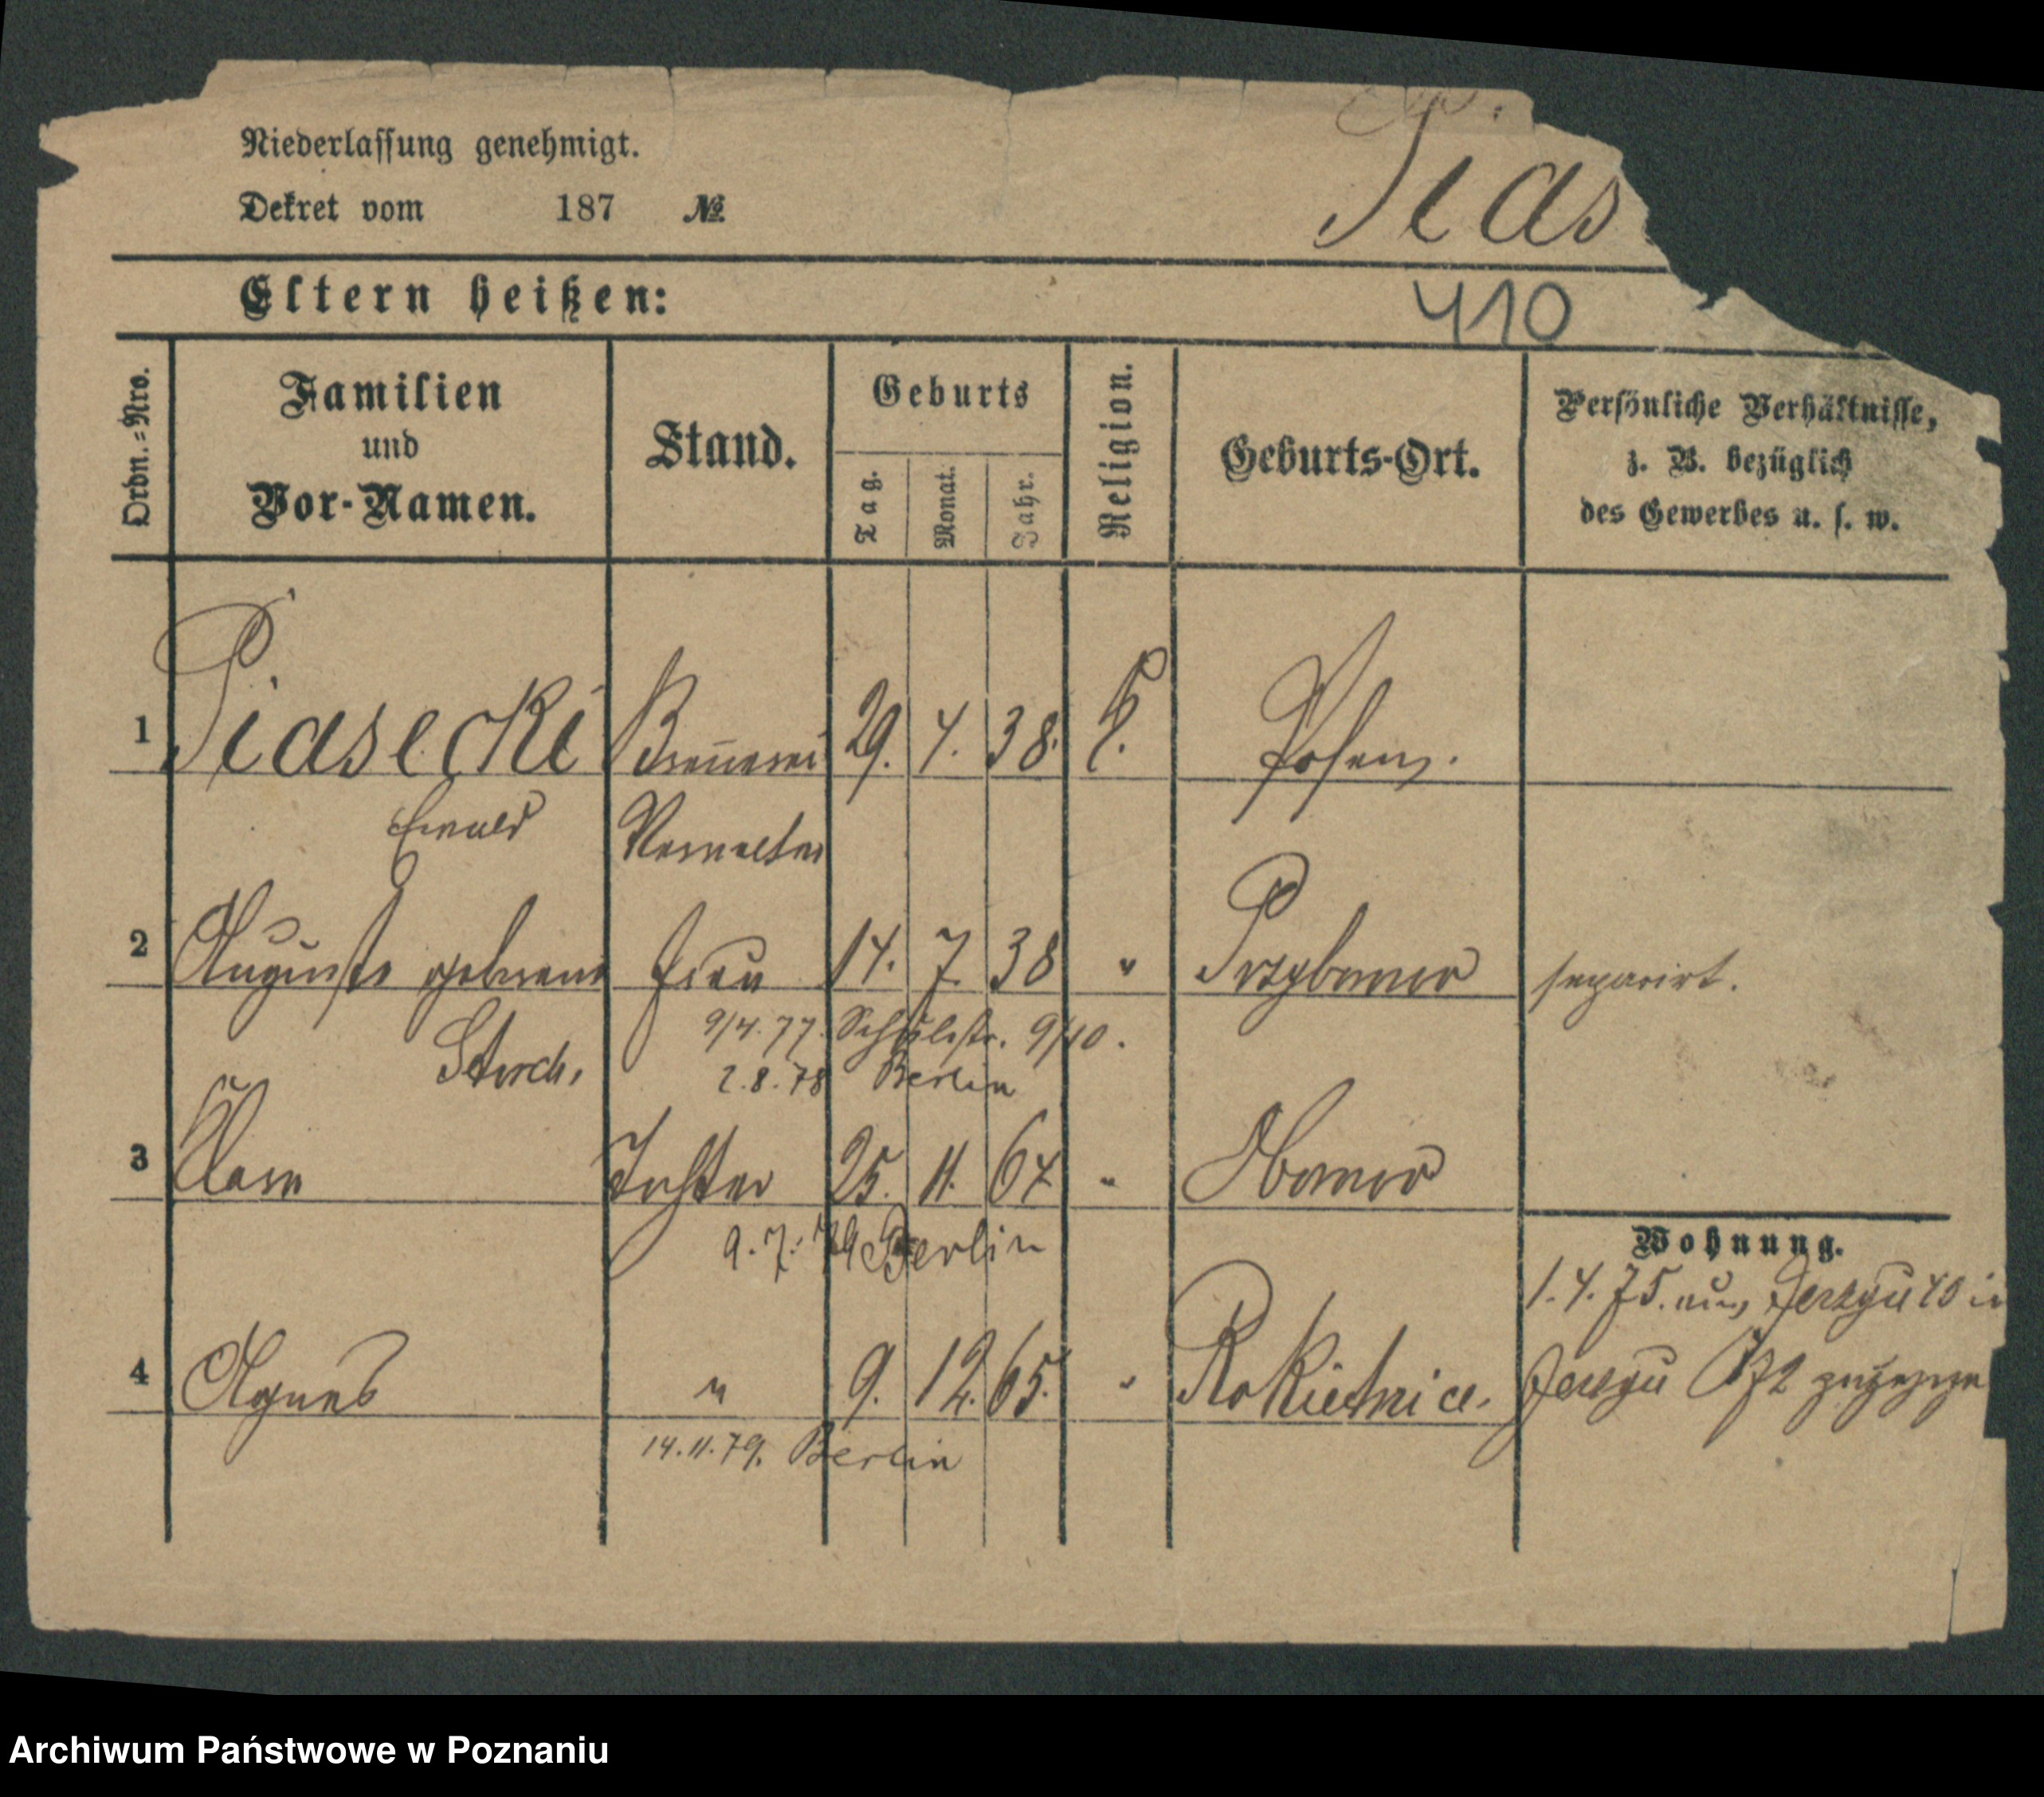 Niederlassung genehmigt.
Dekret vom 187 №
Pias
Eltern heißen:
410
Ordn.=Nro.
Familien
und
Vor-Namen.
Stand.
Geburts
Tag.
Monat.
Jahr.
Religion.
Geburts-Ort.
Persönliche Verhältnisse,
z. B. bezüglich
des Gewerbes u. s. w.
1 Piasecki Brennerei 29. 4. 38. E. Posen.
Ewald Verwalter
2 Auguste geborene Frau 14. 7. 38 " Przyborowo separirt.
Storch. 9/4. 77. Schulstr. 9/10.
2. 8. 78 Berlin
3 Clara Tochter 25. 11. 64 "
9. 7. 79 Berlin
Wohnung.
1. 4. 75. aus Jerzyce 40 in
4 Agnes " 9. 12. 65. " Rokietnice. Jerzyce
14. 11. 79. Berlin
Archiwum Państwowe w Poznaniu